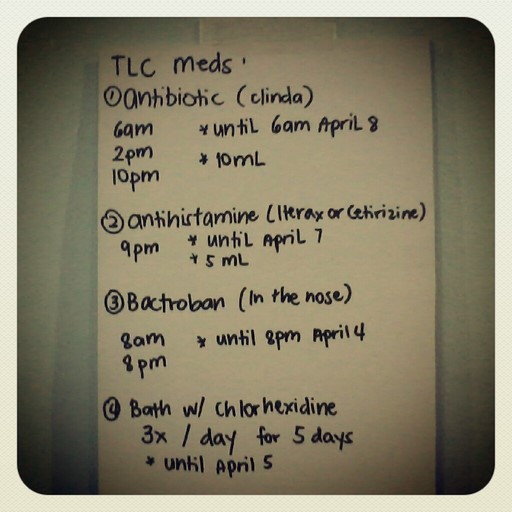 TLC meds
① Antibiotic (clinda)
6am * until 6am April 8
2pm * 10mL
10pm
② Antihistamine (Iterax or Cetirizine)
9pm * until April 7
* 5 mL
③ Bactroban (In the nose)
8am * until 8pm April 4
8pm
④ Bath w/ chlorhexidine
3x / day for 5 days
* until April 5